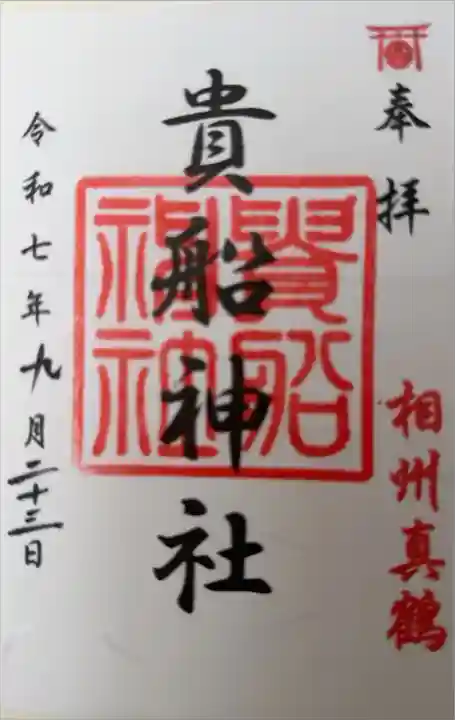 奉拝
相州真鶴
貴船神社
貴船
神社
令和七年九月二十三日